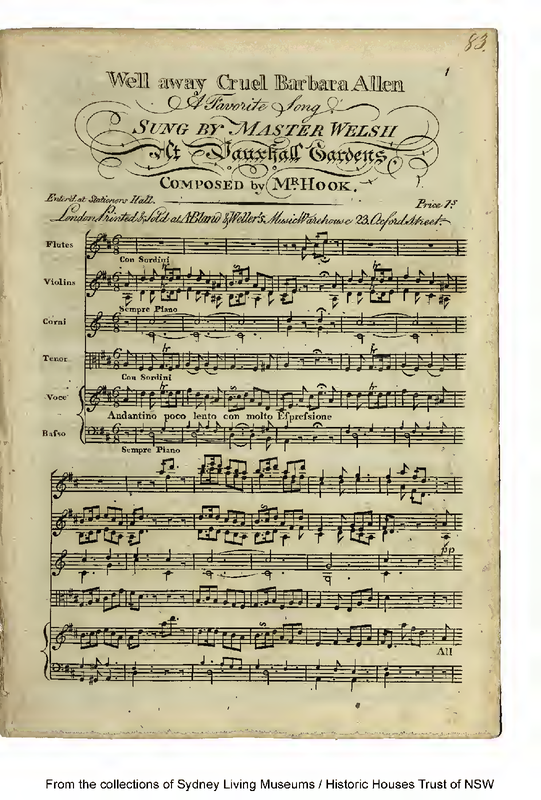 83.
1
Well away Cruel Barbara Allen
A Favorite Song
SUNG BY MASTER WELSH
At Vauxhall Gardens
COMPOSED by MR HOOK.
Enter'd at Stationers Hall.
Price 1s
London, Printed & Sold at A Bland & Weller's, Music Warehouse 23, Oxford Street.
Flutes
Con Sordini
tr
tr
Violins
Sempre Piano
Corni
tr
tr
Tenor
Con Sordini
tr
tr
Voce
Andantino poco lento con molto Eſpreſsione
Baſso
Sempre Piano
pp
All
From the collections of Sydney Living Museums / Historic Houses Trust of NSW